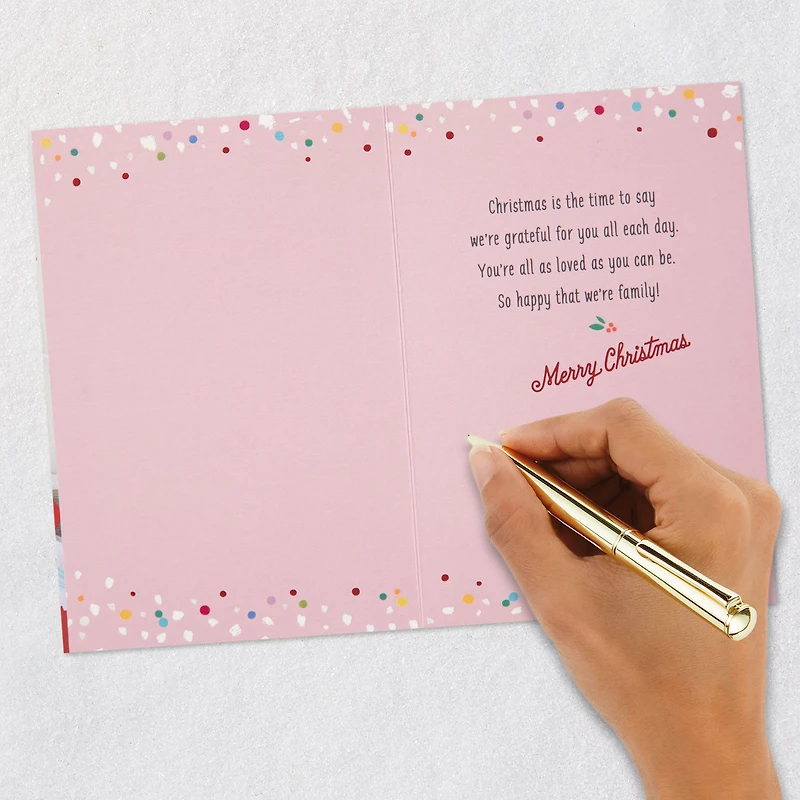 Christmas is the time to say
we're grateful for you all each day.
You're all as loved as you can be.
So happy that we're family!
Merry Christmas